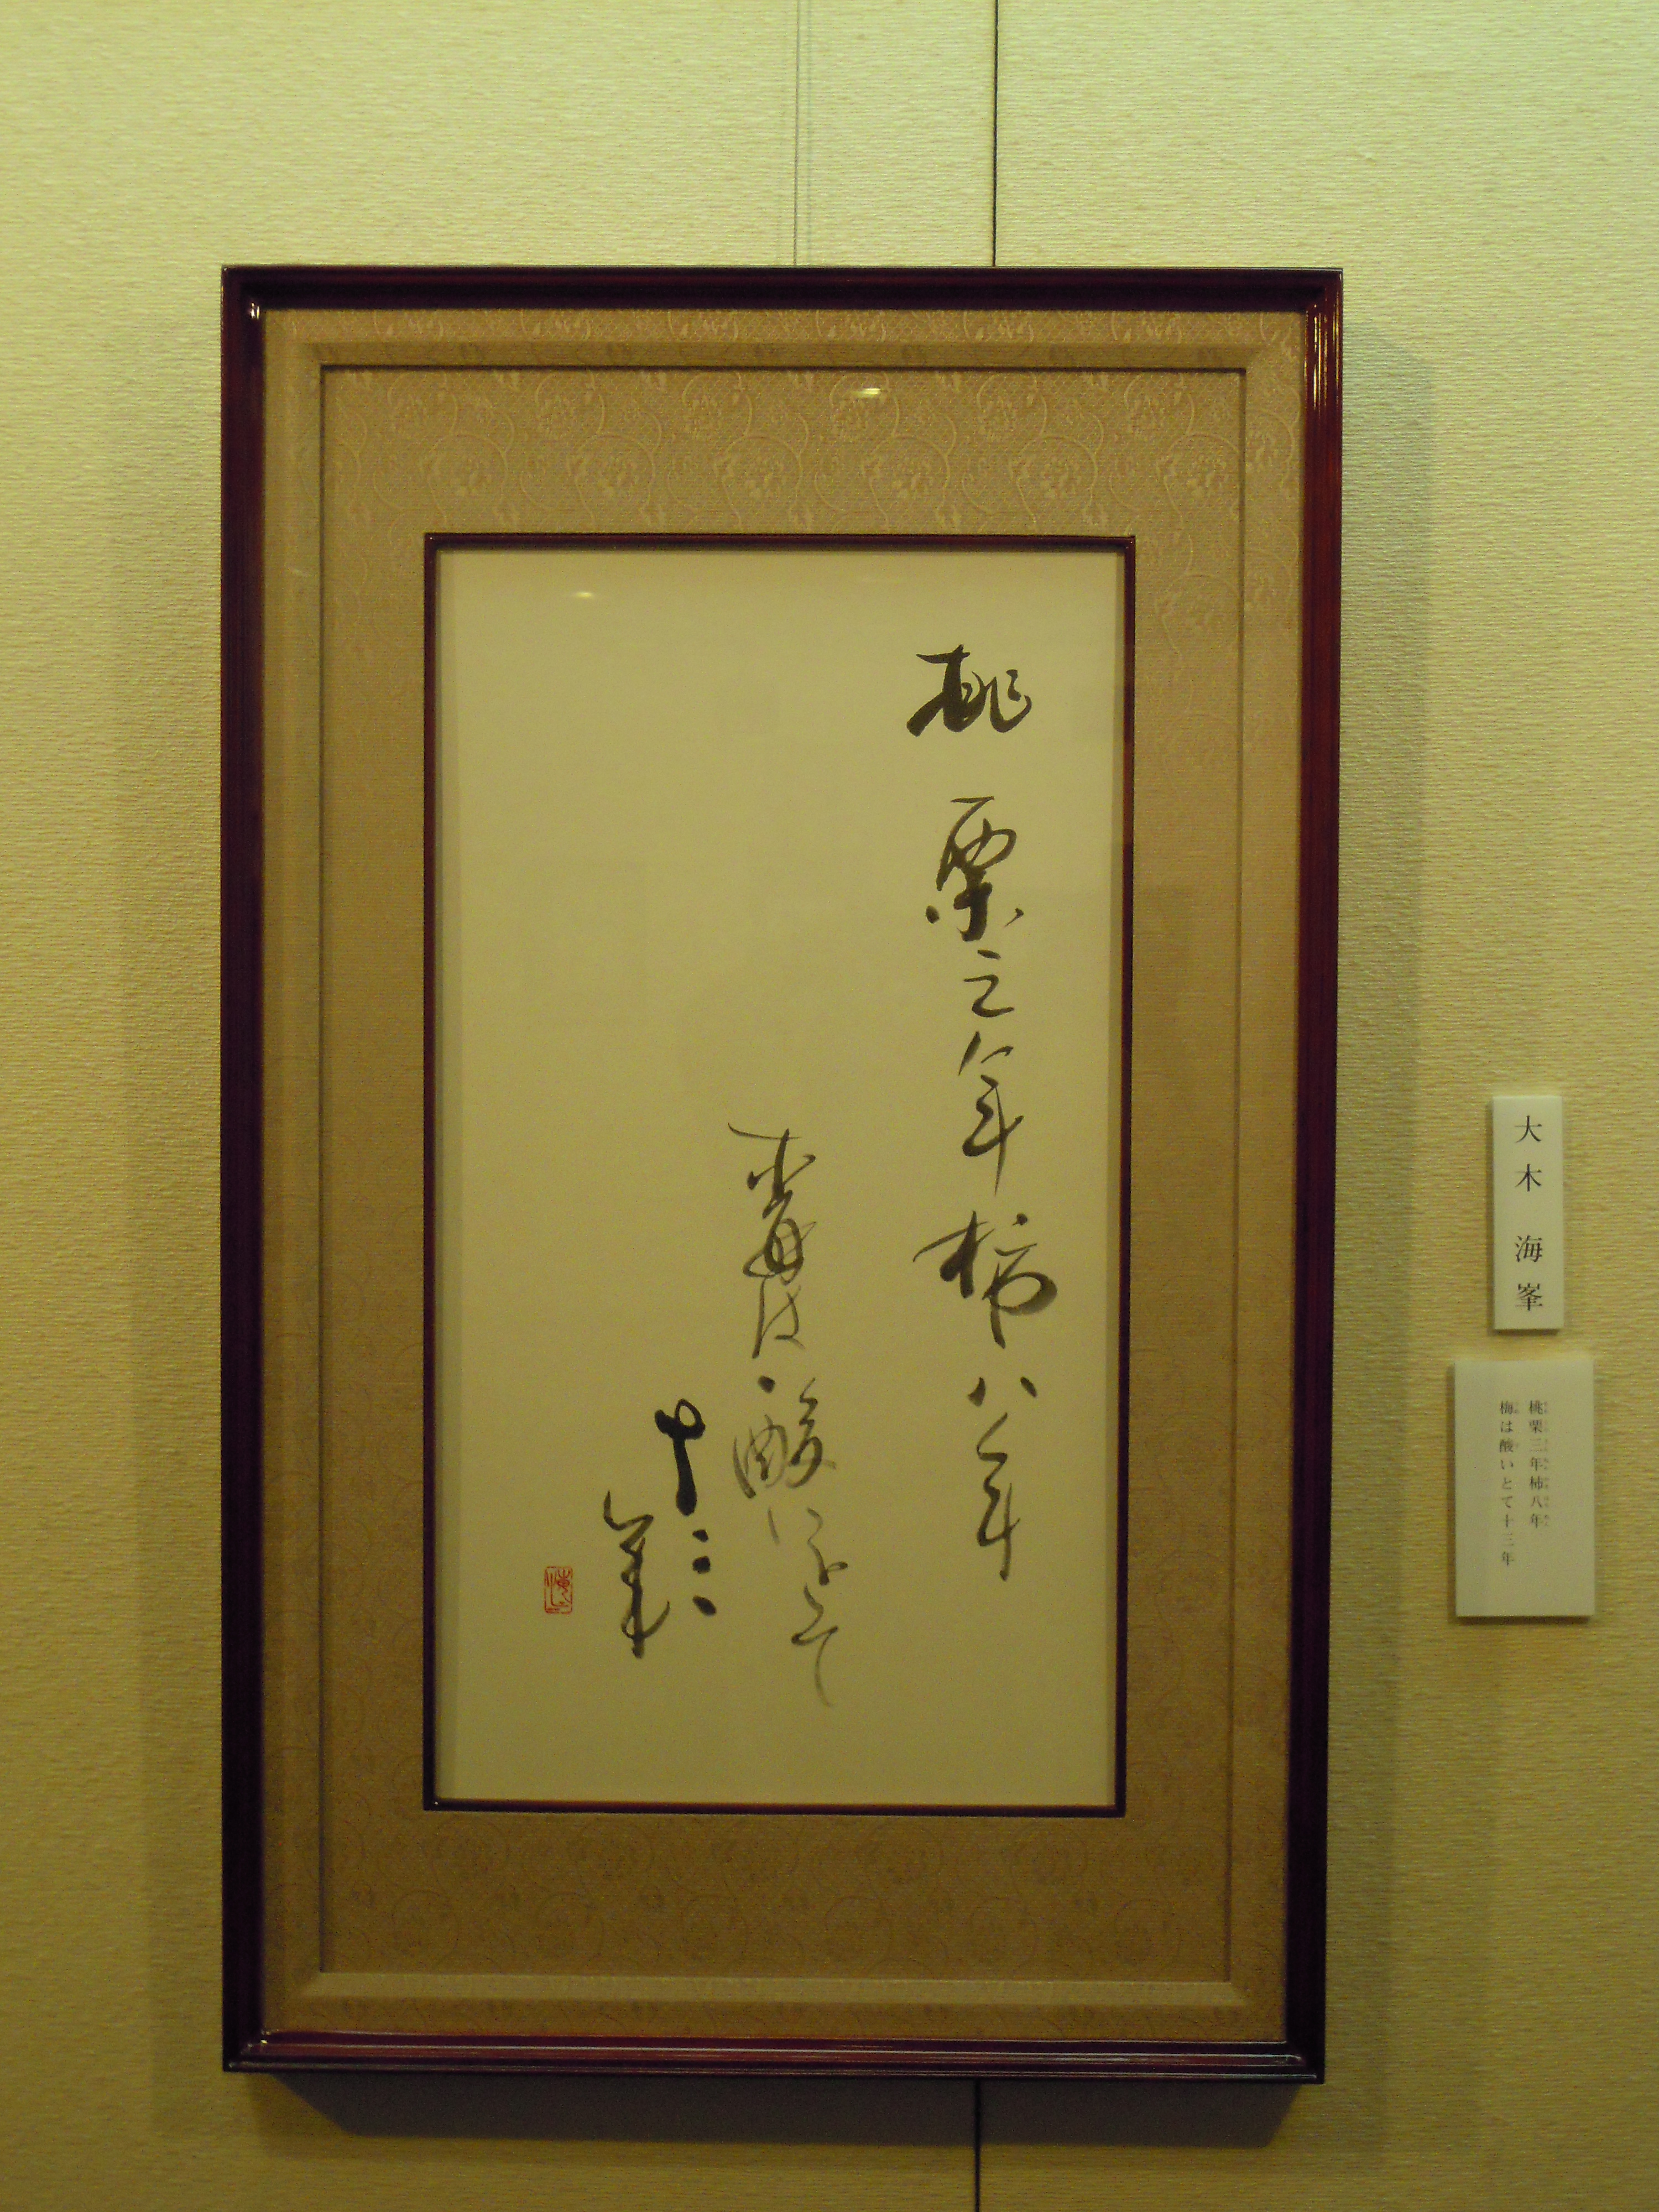 桃栗三年柿八年
梅は酸いとて
十三
年
大木 海峯
桃栗三年柿八年
梅は酸いとて十三年